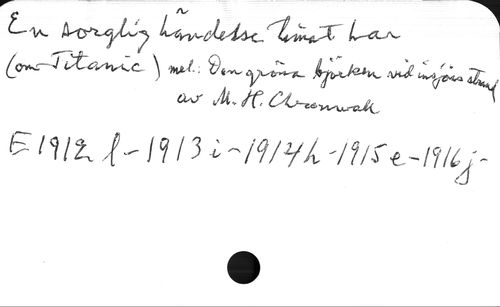 En sorglig händelse timat har
(om Titanic) mel.: Den gröna björken vid insjöns strand
av M. H. Chronwall
E 1912 l - 1913 i - 1914 h - 1915 e - 1916 j -